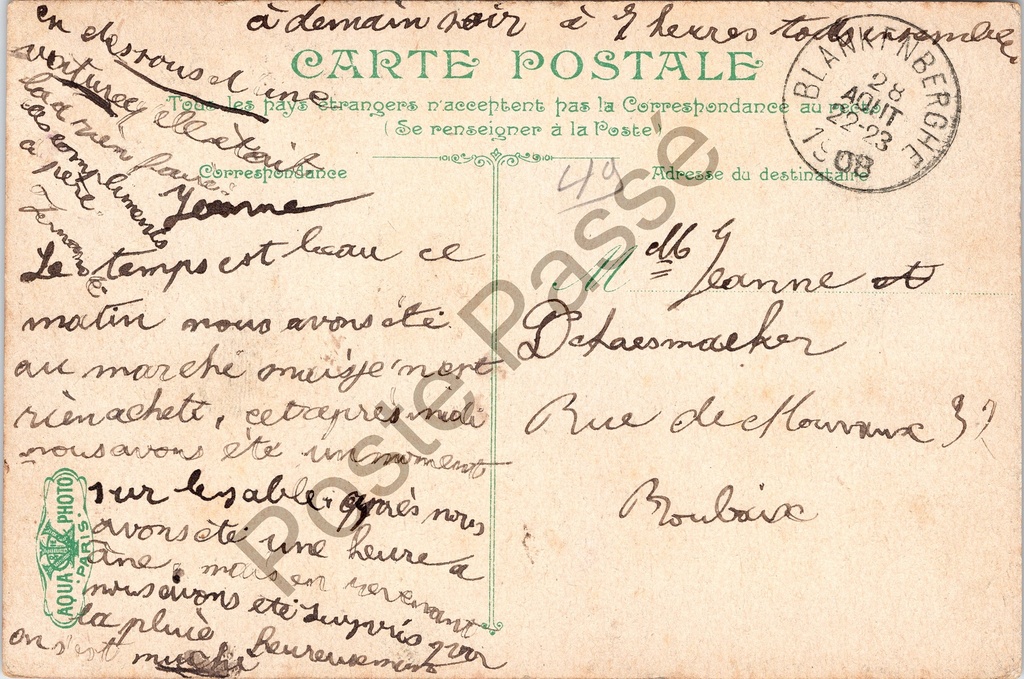 à demain soir à 7 heures tous ensemble
en dessous d'une
voiture
CARTE POSTALE
Tous les pays étrangers n'acceptent pas la Correspondance au recto
(Se renseigner à la Poste)
BLANKENBERGHE
28
AOUT
22-23
1908
les compliments
a père
Fernande
Jeanne
Correspondance
Adresse du destinataire
49
Le temps est beau ce
matin nous avons été
au marché mais je n'ort
rien acheté, cet après midi
nous avons été un moment
sur le sable, après nous
avons été une heure a
âne, mais en revenant
nous avons été surpris par
la pluie, heureusement
on s'est muché
M Mlle Jeanne
Dehaesmaeker
Rue de Mouvaux 32
Roubaix
AQUA PHOTO
PARIS.
Poste Passé